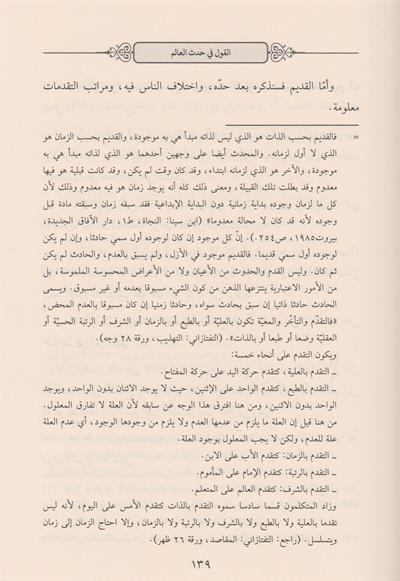 القول في حدث العالم
وأمّا القديم فسنذكره بعد حدّه، واختلاف الناس فيه، ومراتب التقدمات
معلومة.
= فالقديم بحسب الذات هو الذي ليس لذاته مبدأ هي به موجودة، والقديم بحسب الزمان هو
الذي لا أول لزمانه. والمحدث أيضا على وجهين أحدهما هو الذي لذاته مبدأ هي به
موجودة، والآخر هو الذي لزمانه ابتداء، وقد كان وقت لم يكن، وقد كانت قبلية هو فيها
معدوم وقد بطلت تلك القبيلة، ومعنى ذلك كله أنه يوجد زمان هو فيه معدوم وذلك لأن
كل ما لزمان وجوده بداية زمانية دون البداية الإبداعية فقد سبقه زمان وسبقته مادة قبل
وجوده لأنه قد كان لا محالة معدوما» (ابن سينا: النجاة، ط١، دار الآفاق الجديدة،
بيروت١٩٨٥، ص٢٥٤). إنّ كل موجود إن كان لوجوده أول سمي حادثا، وإن لم يكن
لوجوده أول سمي قديما. فالقديم موجود في الأزل، ولم يسبق بالعدم، والحادث لم يكن
ثم كان. وليس القدم والحدوث من الأعيان ولا من الأعراض المحسوسة الملموسة، بل
من الأمور الاعتبارية ينتزعها الذهن من كون الشيء مسبوقا بعدمه أو غير مسبوق. ويسمى
الحادث حادثا ذاتيا إن سبق بحادث سواء، وحادثا زمنيا إن كان مسبوقا بالعدم المحض،
«فالتقدّم والتأخّر والمعيّة تكون بالعليّة أو بالطبع أو بالزمان أو الشرف أو الرتبة الحسيّة أو
العقليّة وضعا أو طبعا أو بالذات». (التفتازاني: التهذيب، ورقة ٢٨ وجه).
ويكون التقدم على أنحاء خمسة:
ـ التقدم بالعلية، كتقدم حركة اليد على حركة المفتاح.
ـ التقدم بالطبع، كتقدم الواحد على الإثنين، حيث لا يوجد الاثنان بدون الواحد، ويوجد
الواحد بدون الاثنين، ومن هنا افترق هذا الوجه عن سابقه لأن العلة لا تفارق المعلول.
من هنا قيل إن العلة ما يلزم من عدمها العدم ولا يلزم من وجودها الوجود، أي عدم العلة
علة للعدم، ولكن لا يجب المعلول بوجود العلة.
ـ التقدم بالزمان: كتقدم الأب على الابن.
ـ التقدم بالرتبة: كتقدم الإمام على المأموم.
ـ التقدم بالشرف: كتقدم العالم على المتعلم.
وزاد المتكلمون قسما سادسا سموه التقدم بالذات كتقدم الأمس على اليوم، لأنه ليس
تقدما بالعلية ولا بالطبع ولا بالشرف ولا بالرتبة ولا بالزمان، وإلا احتاج الزمان إلى زمان
ويتسلسل. (راجع: التفتازاني: المقاصد، ورقة ٢٦ ظهر).
١٣٩